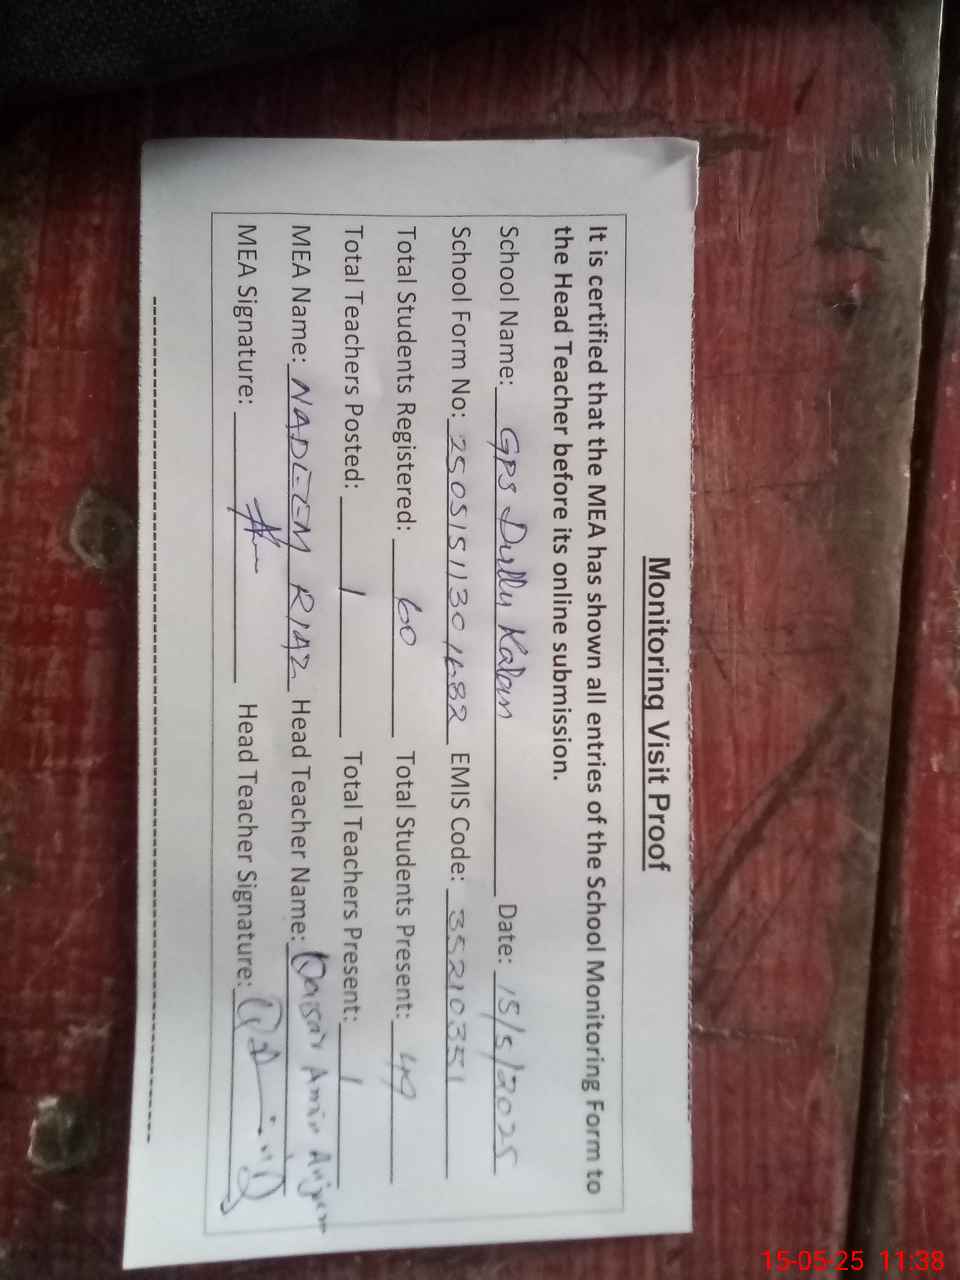 Monitoring Visit Proof
It is certified that the MEA has shown all entries of the School Monitoring Form to
the Head Teacher before its online submission.
School Name: GPS Dullu Kalan Date: 15/5/2025
School Form No: 25051511301682 EMIS Code: 35210351
Total Students Registered: 60 Total Students Present: 49
Total Teachers Posted: 1 Total Teachers Present: 1
MEA Name: NADEEM RIAZ Head Teacher Name: Qaisar Amin Anjum
MEA Signature: Head Teacher Signature:
15-05-25 11:38